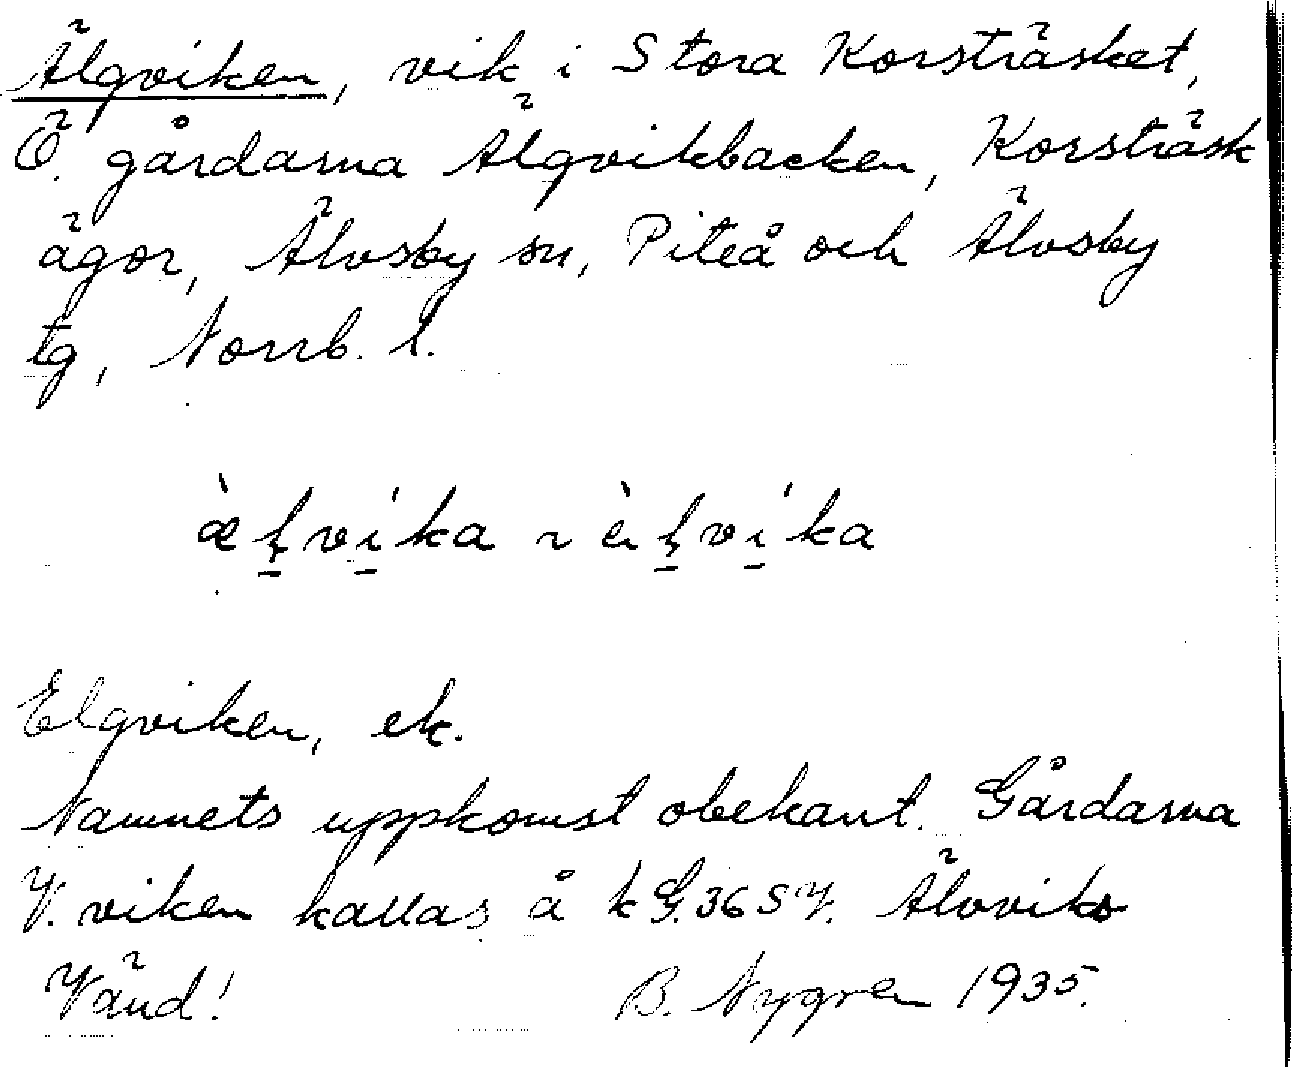 Älgviken, vik i Stora Korsträsket,
Ö. gårdarna Älgvikbacken, Korsträsk
ägor, Älvsby sn, Piteå och Älvsby
tg, Norrb. l.
Elgviken, ek.
Namnets uppkomst obekant. Gårdarna
V. viken kallas å k G.36 S V. Älvviks
Vänd! B. Nygren 1935.